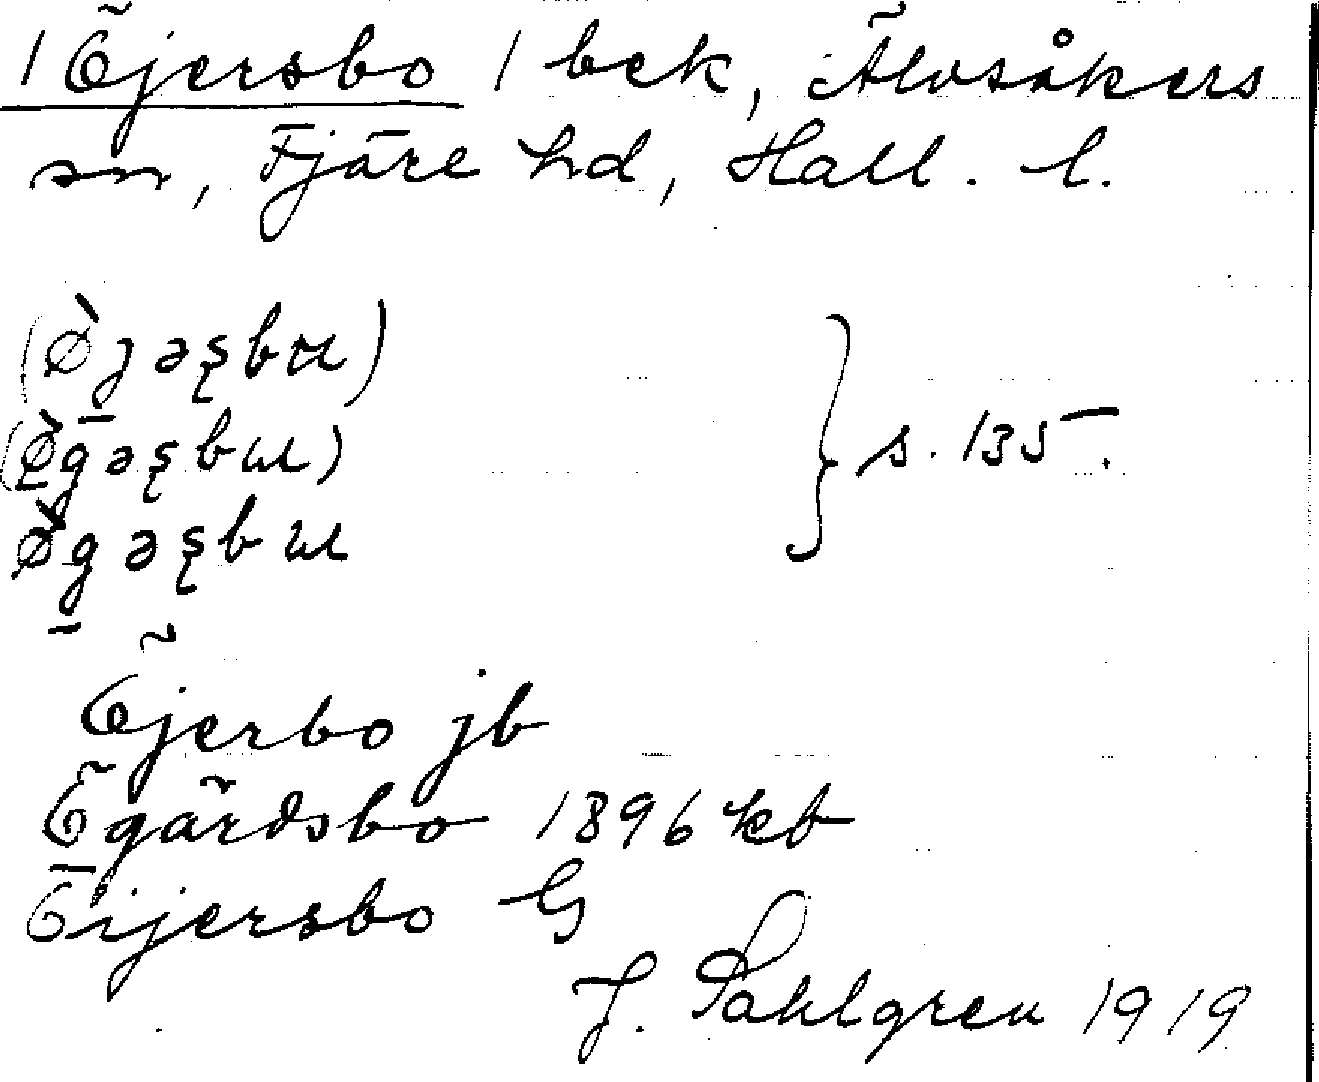 / Öjersbo / bek, Älvsåkers
sn, Fjäre hd, Hall. l.
(Ø̀jəʂbɯ)
(Ø̀gəʂbɯ) } s. 135.
Ø̀gəʂbɯ
Öjerbo jb
Ögärdsbo 1896 kb
Öijersbo G
J. Sahlgren 1919